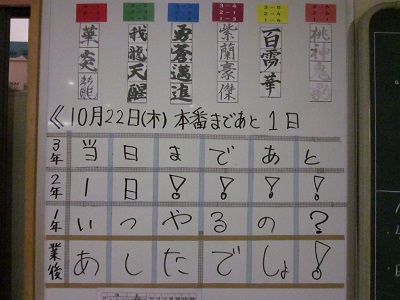 華炎
我龍天醒
勇蒼邁進
紫蘭豪傑
百雷一華
桃神鬼
《10月22日(木) 本番まであと 1日
3年 当日まであと
2年 1日！！！！
1年 いつやるの？
業後 あしたでしょ！